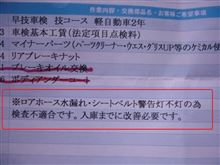 作業内容・交換部品名・お客様ご希望事項
早技車検 技コース 軽自動車2年
3 車検基本工賃(法定項目点検料)
4 マイナーパーツ(パーツクリーナ・ウエス・グリス)P等のケミカル使
4 リアブレーキナット
ブレーキオイル交換
6 ボディアンダーコート
※ロアホース水漏れ・シートベルト警告灯不灯の為
検査不適合です。入庫までに改善必要です。